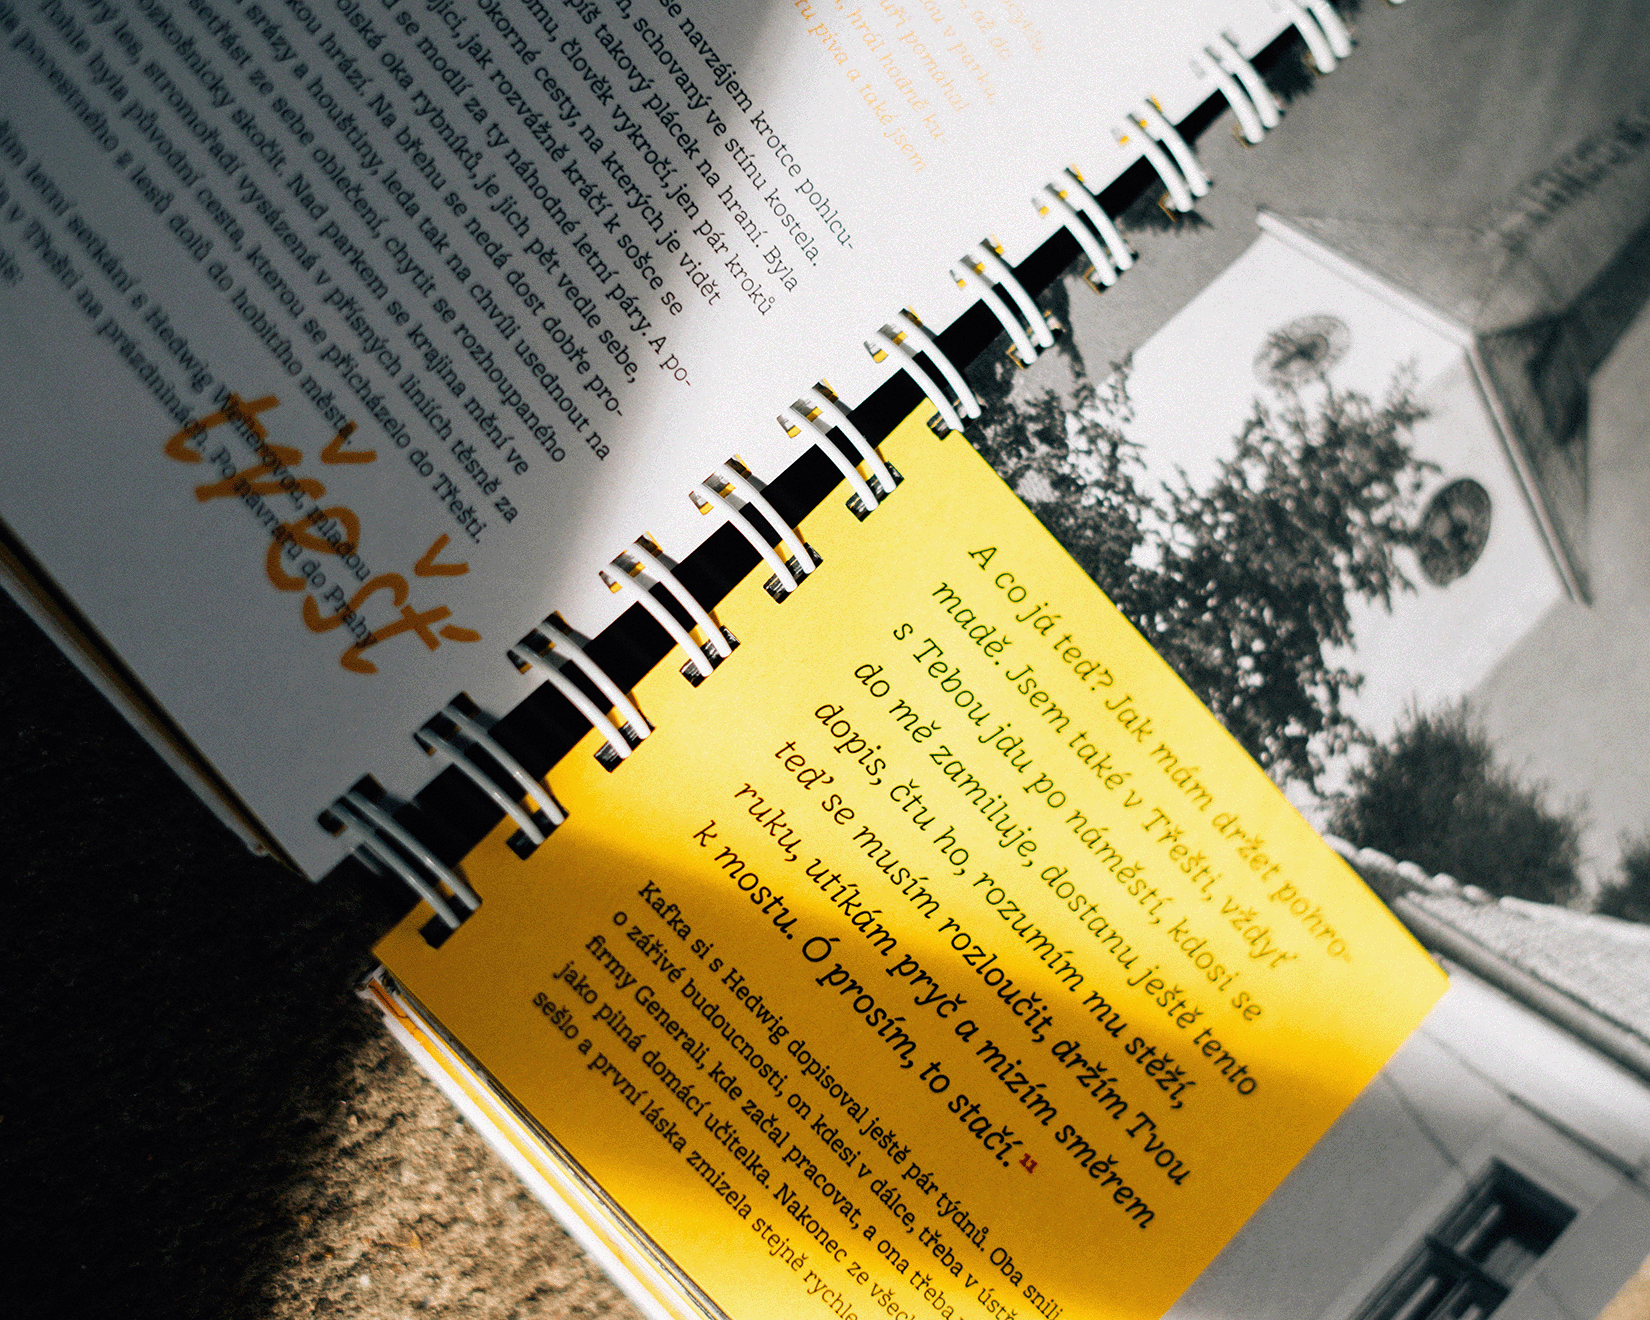 až do
v parku.
pomáhal
hrál hodně
piva a také jsem
se navzájem krotce pohlcu-
schovaný ve stínu kostela.
takový plácek na hraní. Byla
člověk vykročí, jen pár kroků
cesty, na kterých je vidět
jak rozvážně kráčí k sošce se
se modlí za ty náhodné letní páry. A po-
oka rybníků, je jich pět vedle sebe,
hrází. Na břehu se nedá dost dobře pro-
srázy a houštiny, leda tak na chvíli usednout na
setřást ze sebe oblečení, chytit se rozhoupaného
rozkošnicky skočit. Nad parkem se krajina mění ve
les, stromořadí vysázená v přísných liniích těsně za
Tohle byla původní cesta, kterou se přicházelo do Třešti.
pocestného z lesů dolů do hobitího města.
letní setkání s Hedwig mladou
v Třešti na prázdninách. Po návratu do Prahy
třešť
A co já teď? Jak mám držet pohro-
madě. Jsem také v Třešti, vždyť
s Tebou jdu po náměstí, kdosi se
do mě zamiluje, dostanu ještě tento
dopis, čtu ho, rozumím mu stěží,
teď se musím rozloučit, držím Tvou
ruku, utíkám pryč a mizím směrem
k mostu. Ó prosím, to stačí. 11
Kafka si s Hedwig dopisoval ještě pár týdnů. Oba snili
o zářivé budoucnosti, on kdesi v dálce, třeba v
firmy Generali, kde začal pracovat, a ona třeba
jako pilná domácí učitelka. Nakonec ze
sešlo a první láska zmizela stejně rychle